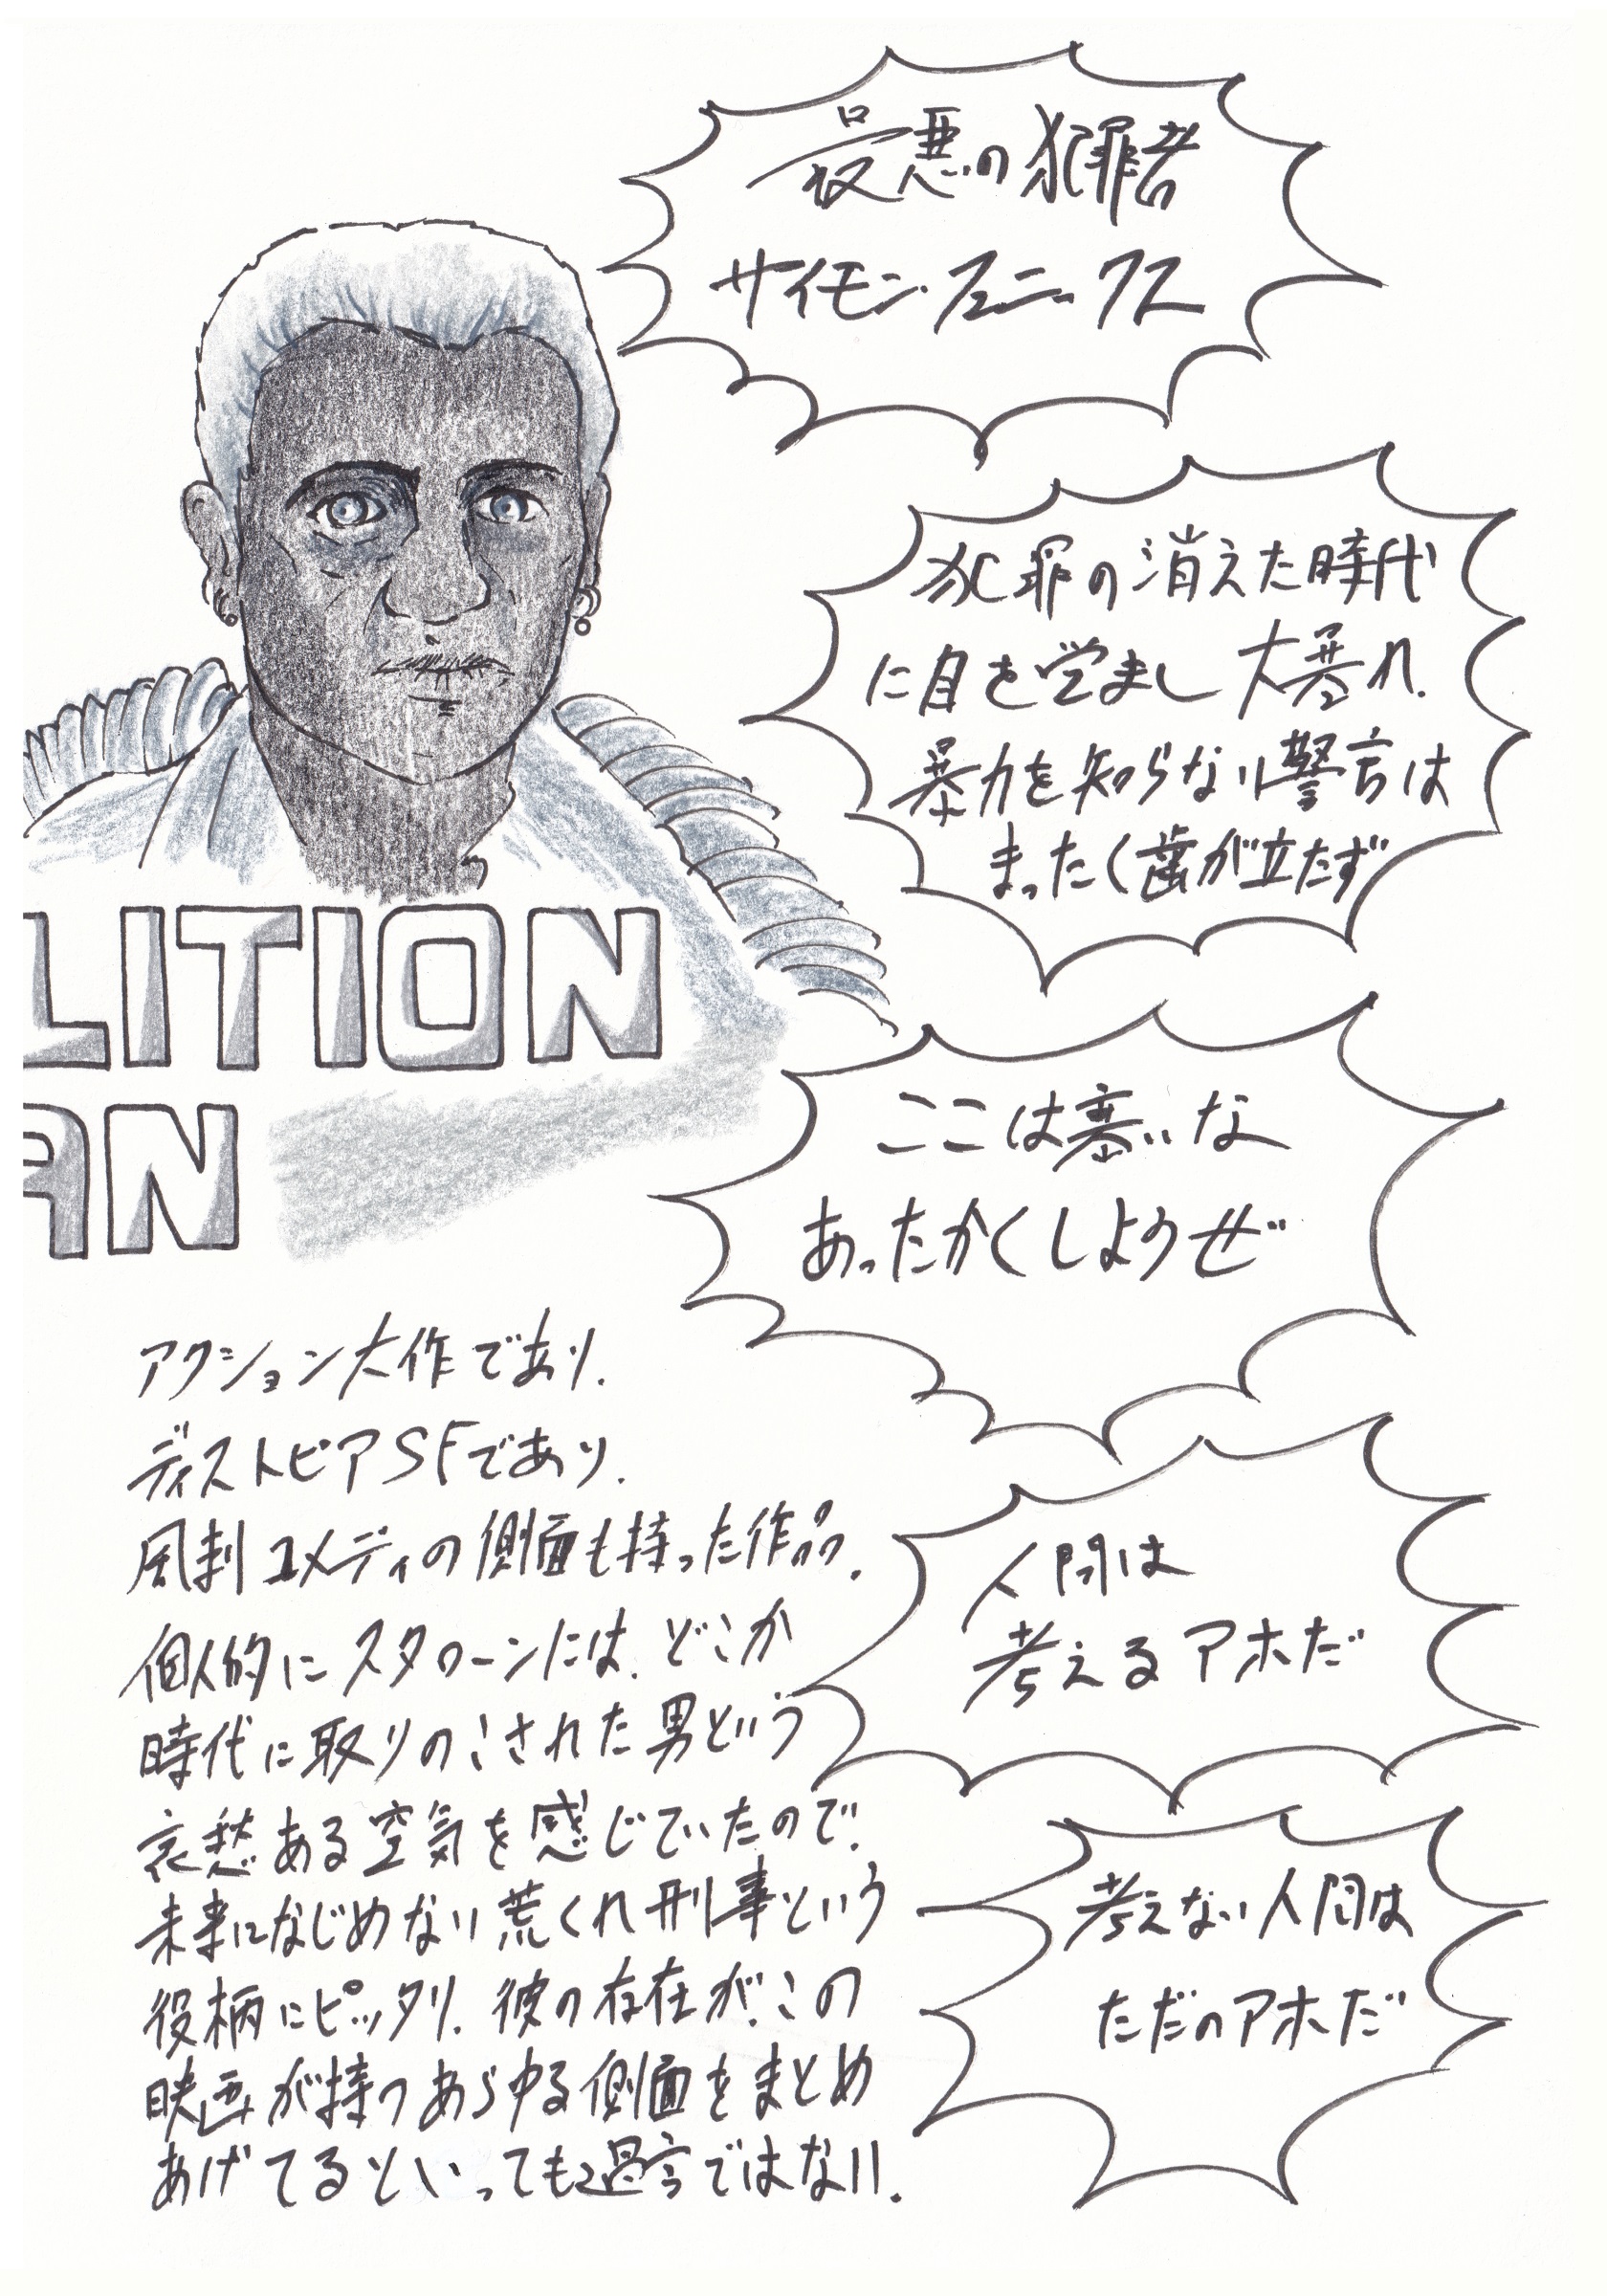 最悪の犯罪者
サイモン・フェニックス
犯罪の消えた時代
に目を覚まし大暴れ.
暴力を知らない警官は
まったく歯が立たず
LITION
AN
ここは寒いな
あったかくしようぜ
アクション大作であり.
ディストピアSFであり.
風刺コメディの側面も持った作品.
個人的にスタローンには.どこか
時代に取りのこされた男という
哀愁ある空気を感じていたので.
未来になじめない荒くれ刑事という
役柄にピッタリ.彼の存在が.この
映画が持つあらゆる側面をまとめ
あげてるといっても過言ではない.
人間は
考えるアホだ
考えない人間は
ただのアホだ